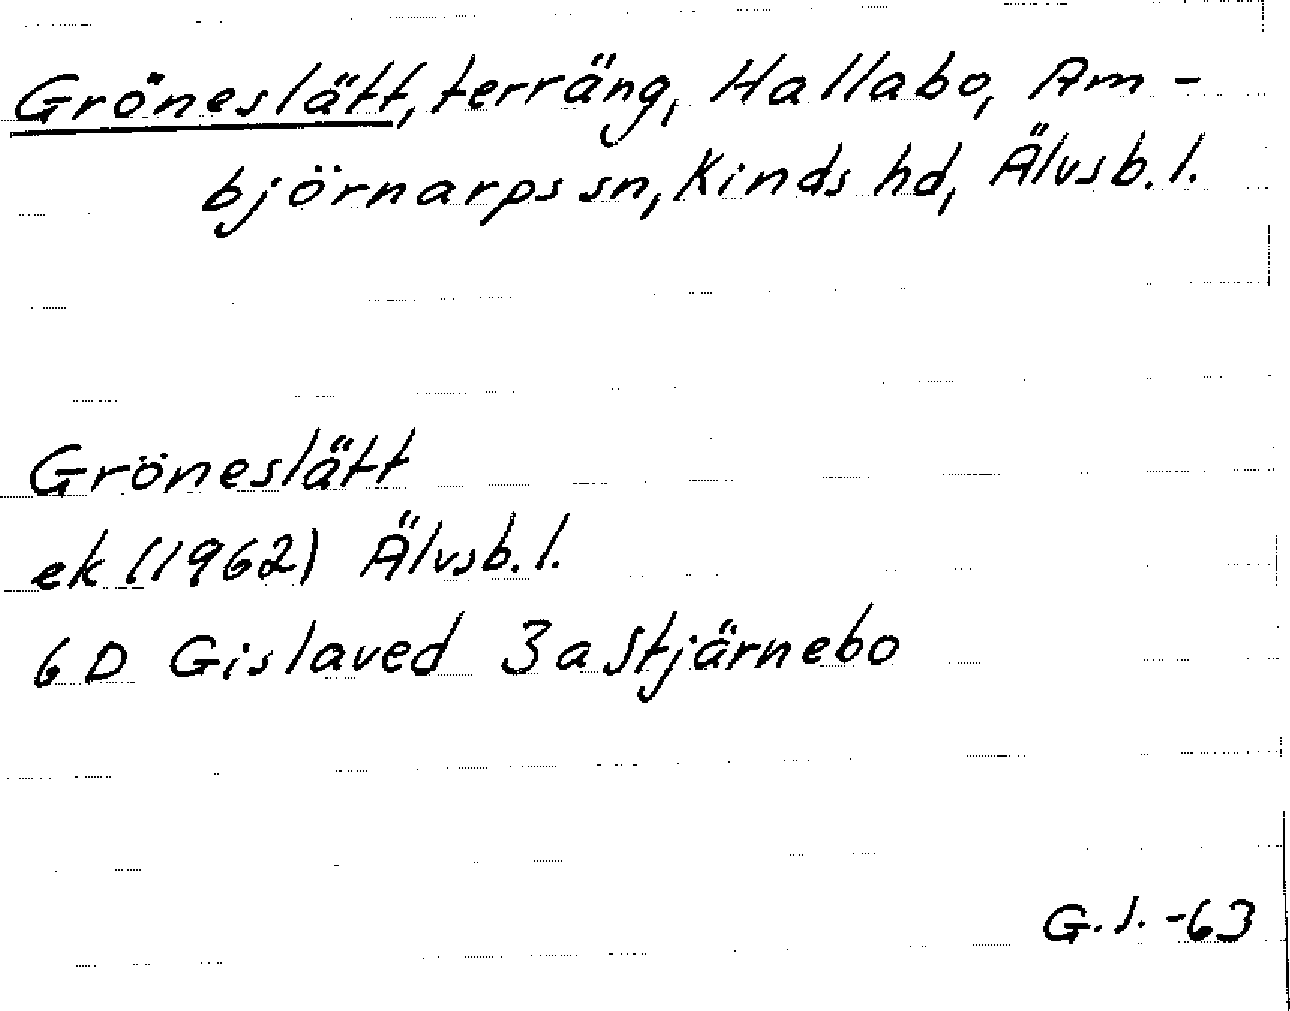 Gröneslätt, terräng, Hallabo, Am-
björnarps sn, Kinds hd, Älvsb. l.
Gröneslätt
ek (1962) Älvsb. l.
6 D Gislaved 3a Stjärnebo
G. J. -63